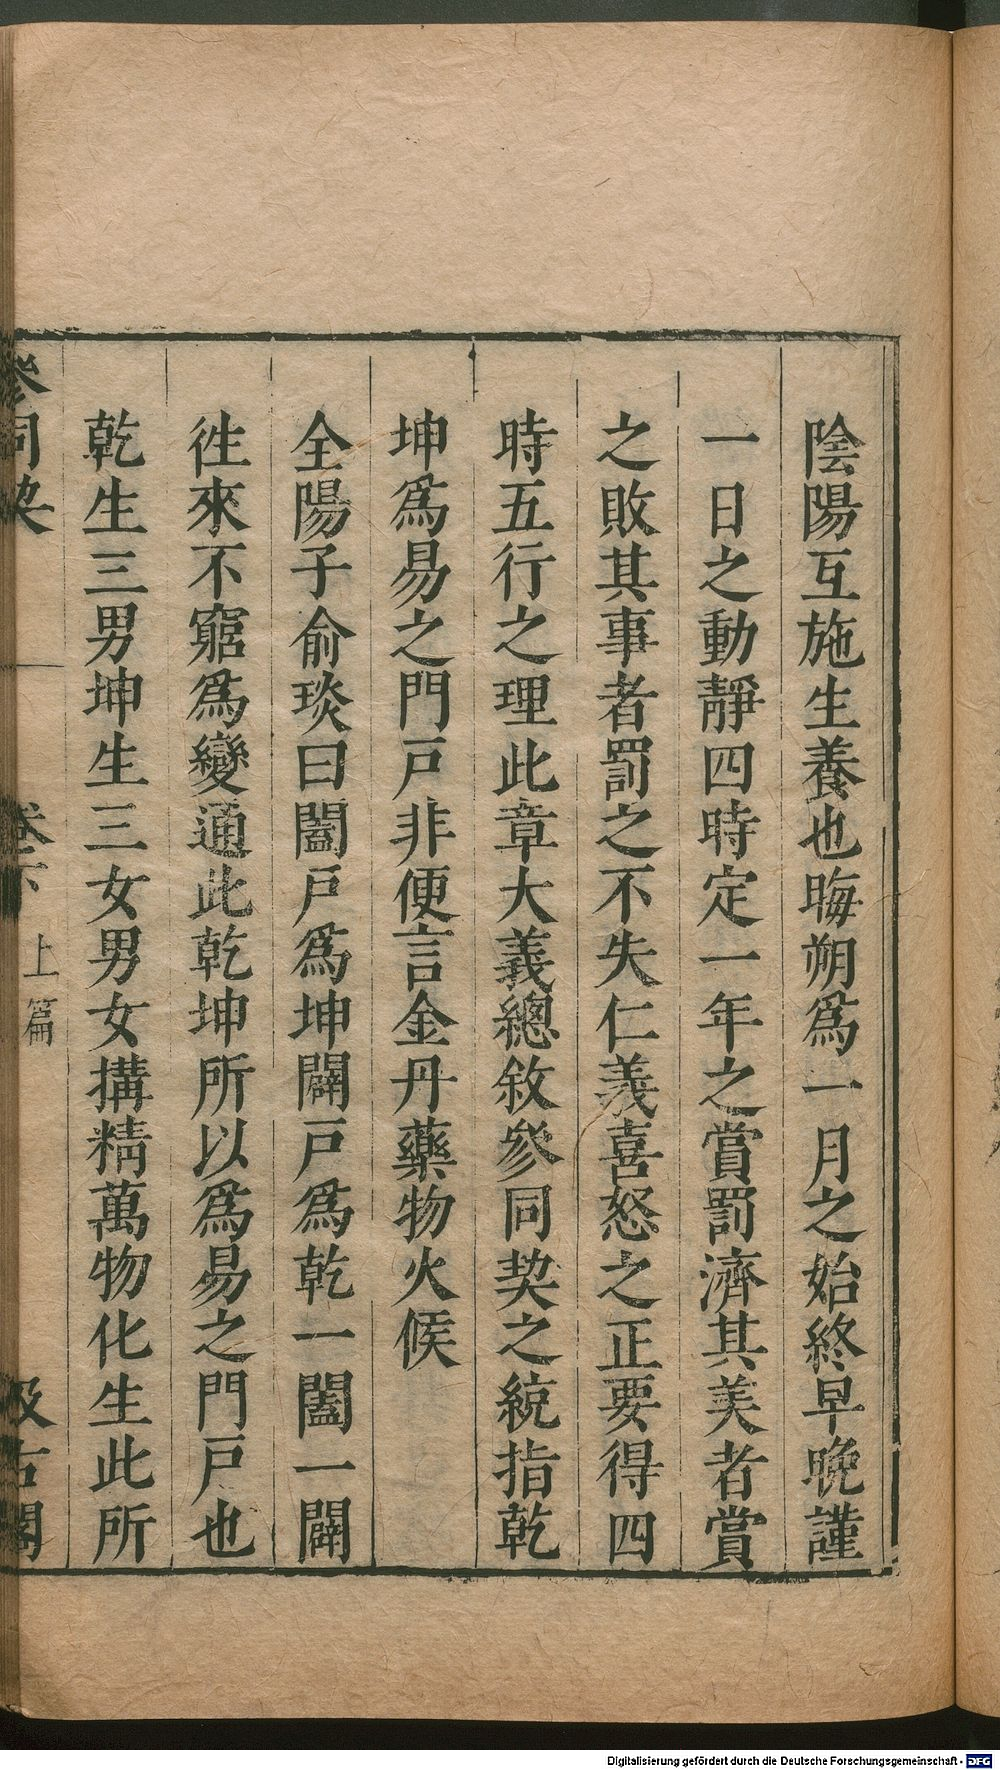 陰陽互施生養也晦朔爲一月之始終早晚謹
一日之動靜四時定一年之賞罰濟其美者賞
之敗其事者罰之不失仁義喜怒之正要得四
時五行之理此章大義總敘參同契之統指乾
坤爲易之門戶非便言金丹藥物火候
全陽子俞琰曰闔戶爲坤闢戶爲乾一闔一闢
徃來不窮爲變通此乾坤所以爲易之門戶也
乾生三男坤生三女男女搆精萬物化生此所
參同契 卷下 上篇 汲古閣
Digitalisierung gefördert durch die Deutsche Forschungsgemeinschaft - DFG